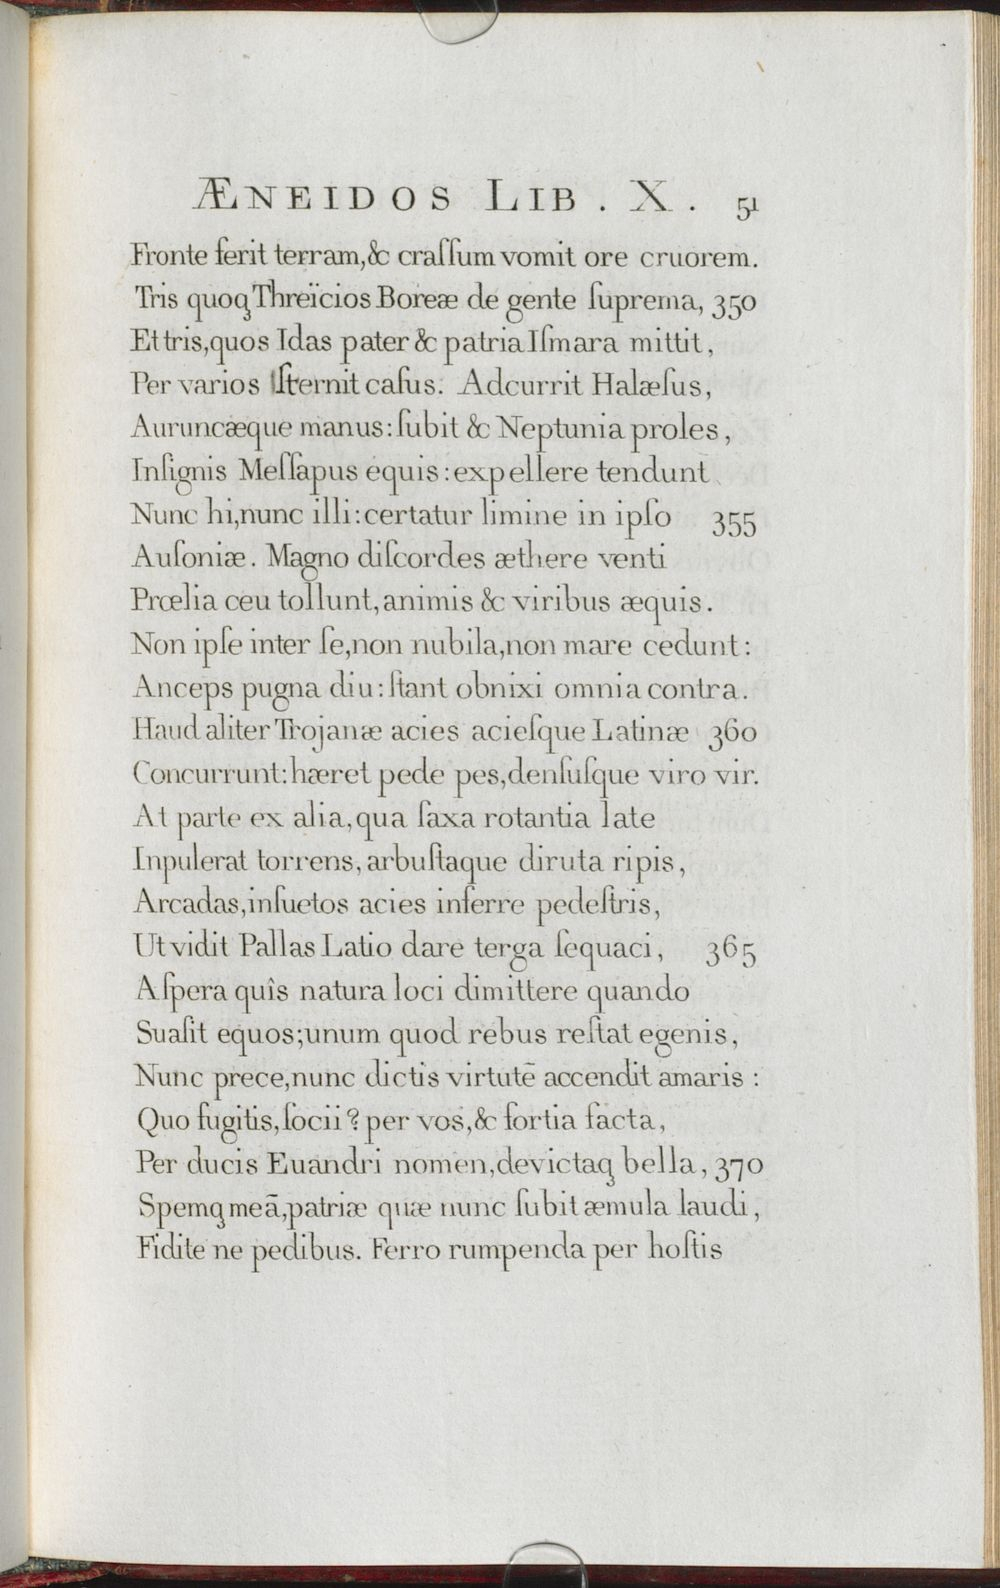 ÆNEIDOS LIB. X. 51
Fronte ferit terram, & craſſum vomit ore cruorem.
Tris quoqꝫ Threïcios Boreæ de gente ſuprema, 350
Et tris, quos Idas pater & patria Iſmara mittit,
Per varios ſternit caſus. Adcurrit Halæſus,
Auruncæque manus: ſubit & Neptunia proles,
Inſignis Meſſapus equis: expellere tendunt
Nunc hi, nunc illi: certatur limine in ipſo 355
Auſoniæ. Magno diſcordes æthere venti
Prœlia ceu tollunt, animis & viribus æquis.
Non ipſe inter ſe, non nubila, non mare cedunt:
Anceps pugna diu: ſtant obnixi omnia contra.
Haud aliter Trojanæ acies acieſque Latinæ 360
Concurrunt: hæret pede pes, denſuſque viro vir.
At parte ex alia, qua ſaxa rotantia late
Inpulerat torrens, arbuſtaque diruta ripis,
Arcadas, inſuetos acies inferre pedeſtris,
Ut vidit Pallas Latio dare terga ſequaci, 365
Aſpera quîs natura loci dimittere quando
Suaſit equos; unum quod rebus reſtat egenis,
Nunc prece, nunc dictis virtutē accendit amaris:
Quo fugitis, ſocii? per vos, & fortia facta,
Per ducis Euandri nomen, devictaqꝫ bella, 370
Spemqꝫ meā, patriæ quæ nunc ſubit æmula laudi,
Fidite ne pedibus. Ferro rumpenda per hoſtis